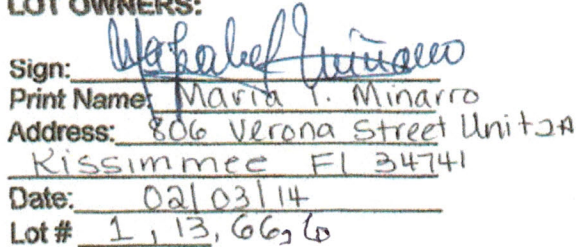 LOT OWNERS:
Sign:
Print Name: Maria I. Minarro
Address: 806 Verona Street Unit 2A
Kissimmee Fl 34741
Date: 02/03/14
Lot # 1, 13, 66,